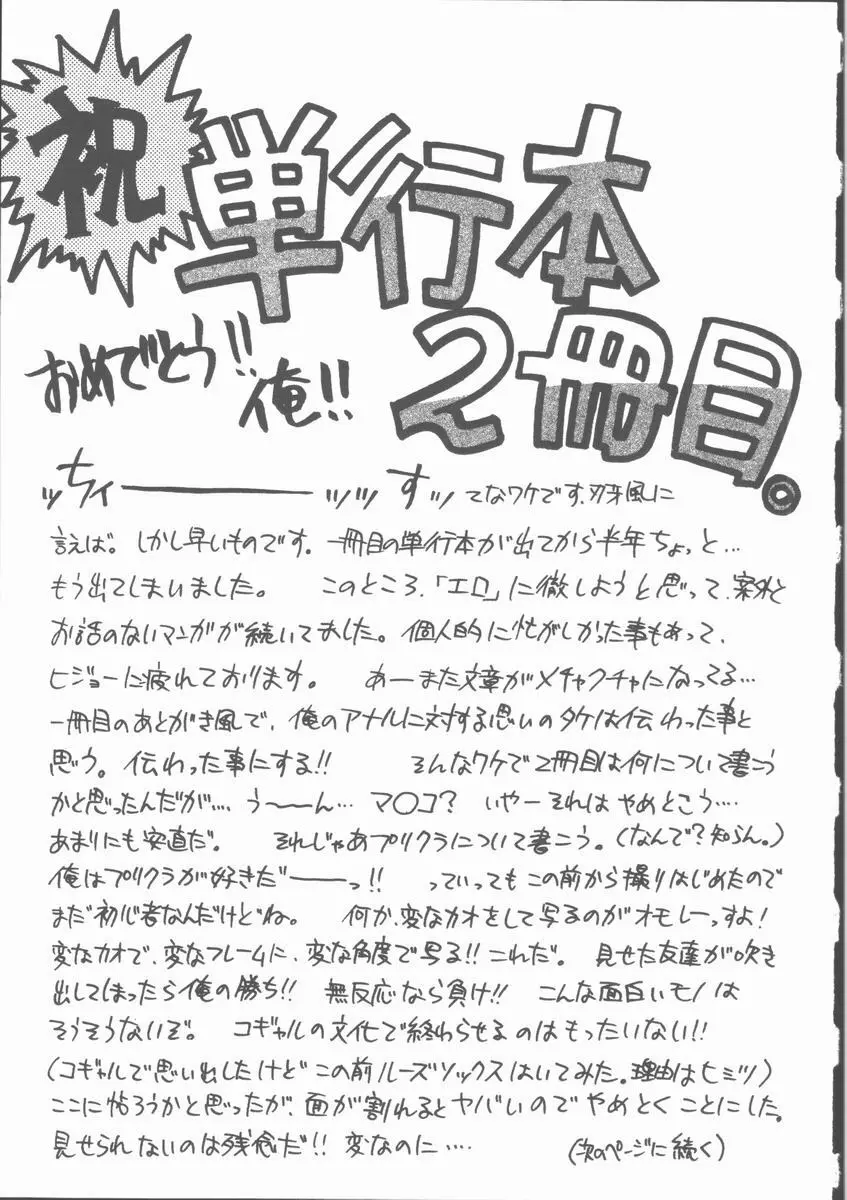 祝
単行本
2冊目。
おめでとう!!
俺!!
ッちィーーーッッすッ てなワケです、刃牙風に
言えば。 しかし早いものです。一冊目の単行本が出てから半年ちょっと…
もう出てしまいました。 このところ、「エロ」に徹しようと思って、案外と
お話のないマンガが続いてました。個人的に忙がしかった事もあって、
ヒジョーに疲れております。 あーまた文章がメチャクチャになってる…
一冊目のあとがき風で、俺のアナルに対する思いのタケは伝わった事と
思う。伝わった事にする!! そんなワケで2冊目は何について書こう
かと思ったんだが…. う〜〜ん… マ○コ? いやーそれはやめとこう….
あまりにも安直だ。 それじゃあプリクラについて書こう。(なんで?知らん。)
俺はプリクラが好きだーーっ!! っていってもこの前から撮りはじめたので
まだ初心者なんだけどね。 何か、変なカオをして写るのがオモレーっすよ!
変なカオで、変なフレームに、変な角度で写る!!これだ。 見せた友達が吹き
出してしまったら俺の勝ち!! 無反応なら負け!! こんな面白いモノは
そうそうないぞ。 コギャルの文化で終わらせるのはもったいない!!
(コギャルで思い出したけどこの前ルーズソックスはいてみた。理由はヒミツ)
ここに帖ろうかと思ったが、面が割れるとヤバいのでやめとくことにした。
見せられないのは残念だ!! 変なのに….
(次のページに続く)